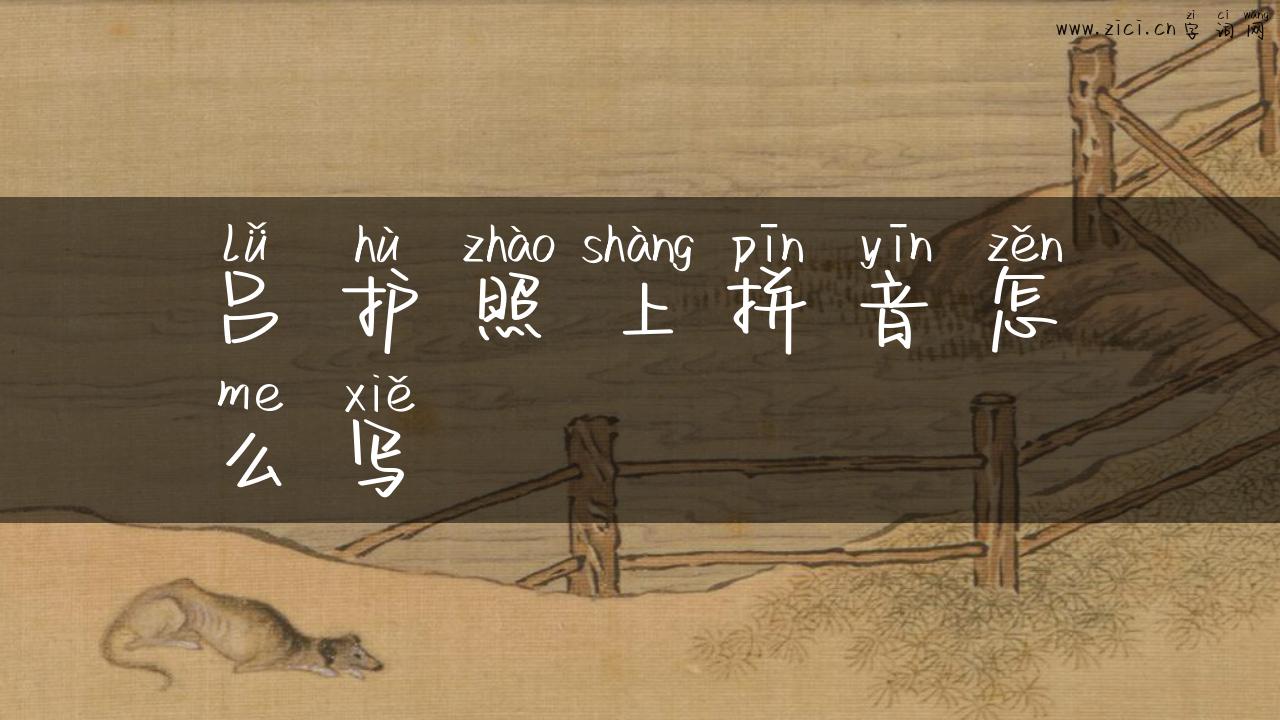 zì cí wǎng
www.zici.cn 字 词 网
lǚ hù zhào shàng pīn yīn zěn
吕 护 照 上 拼 音 怎
me xiě
么 写